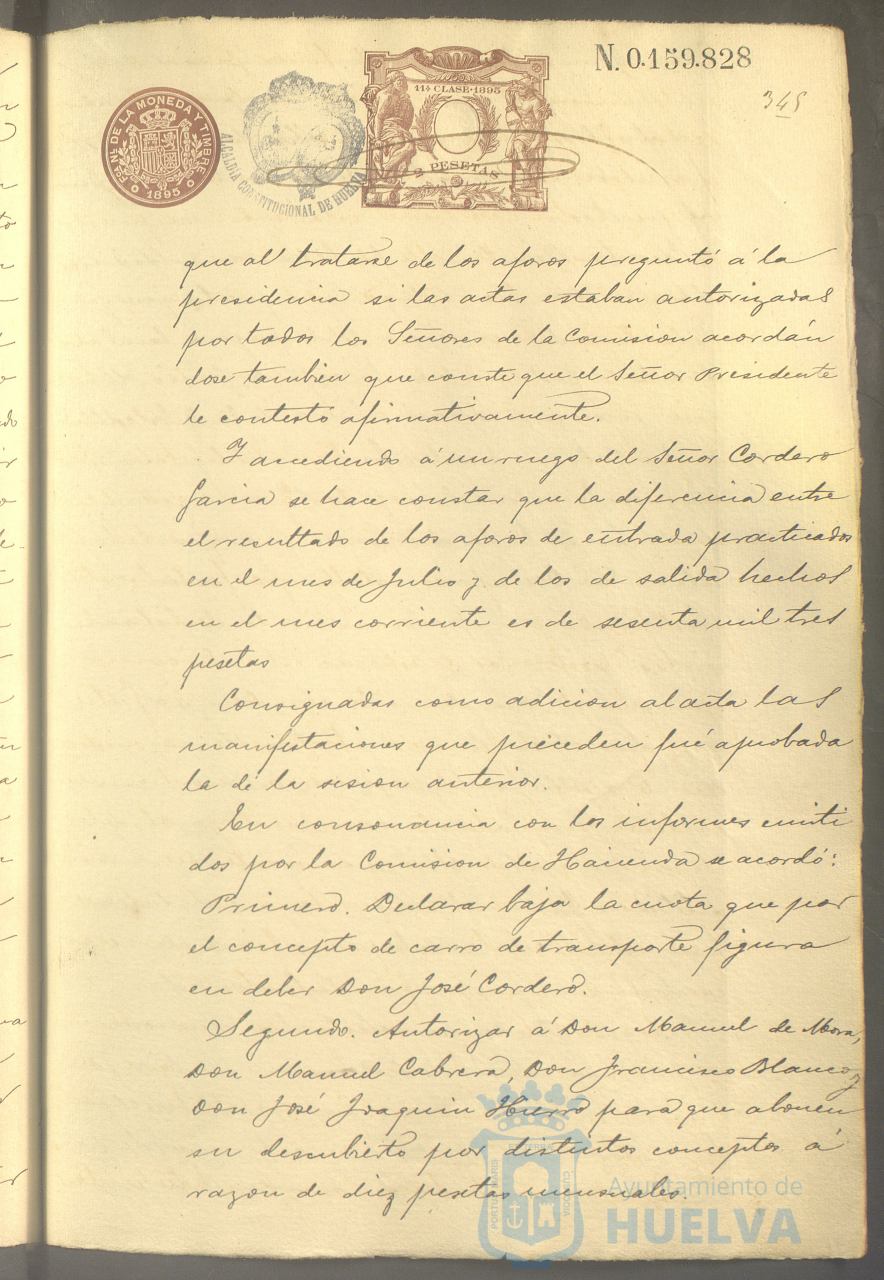 N. 0.159.828
345
FCA. NL. DE LA MONEDA Y TIMBRE
1895
ALCALDIA CONSTITUCIONAL DE HUELVA
11ª CLASE·1895
2 PESETAS
que al tratarse de los aforos preguntó á la
presidencia si las actas estaban autorizadas
por todos los Señores de la Comision acordán
dose tambien que conste que el Señor Presidente
le contestó afirmativamente.
Y accediendo á un ruego del Señor Cordero
Garcia se hace constar que la diferencia entre
el resultado de los aforos de entrada practicados
en el mes de Julio y de los de salida hechos
en el mes corriente es de sesenta mil tres
pesetas
Consignadas como adicion al acta las
manifestaciones que preceden fué aprobada
la de la sesion anterior.
En consonancia con los informes emiti
dos por la Comision de Hacienda se acordó:
Primero. Declarar baja la cuota que por
el concepto de carro de transporte figura
en deber Don José Cordero.
Segundo. Autorizar á Don Manuel de Mora,
Don Manuel Cabrera, Don Francisco Blanco y
Don José Joaquin Hierro para que abonen
su descubierto por distintos conceptos á
razon de diez pesetas mensuales.
PORTUS MARIS
CUSTODIA
Ayuntamiento de
HUELVA